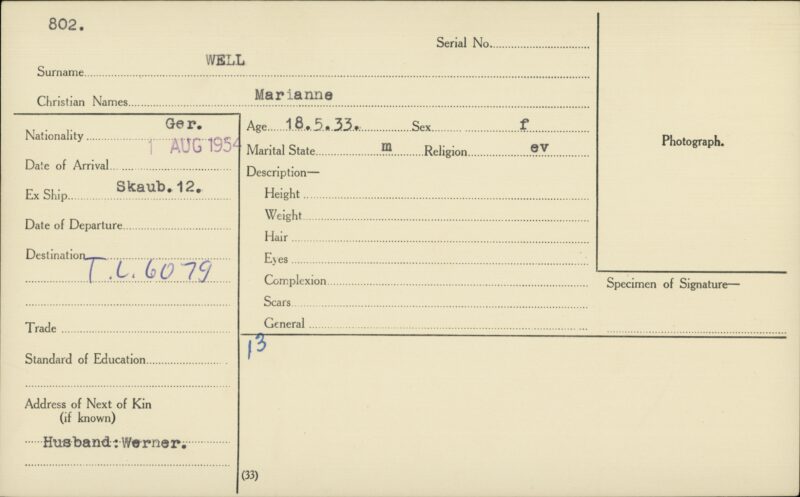 802.
Serial No.
Surname WELL
Christian Names Marianne
Photograph.
Nationality Ger.
1 AUG 1954
Date of Arrival
Ex Ship Skaub.12.
Date of Departure
Destination T.L.6079
Trade
Standard of Education
Address of Next of Kin
(if known)
Husband:Werner.
Age 18.5.33. Sex f
Marital State m Religion ev
Description—
Height
Weight
Hair
Eyes
Complexion
Scars
General
Specimen of Signature—
13
(33)